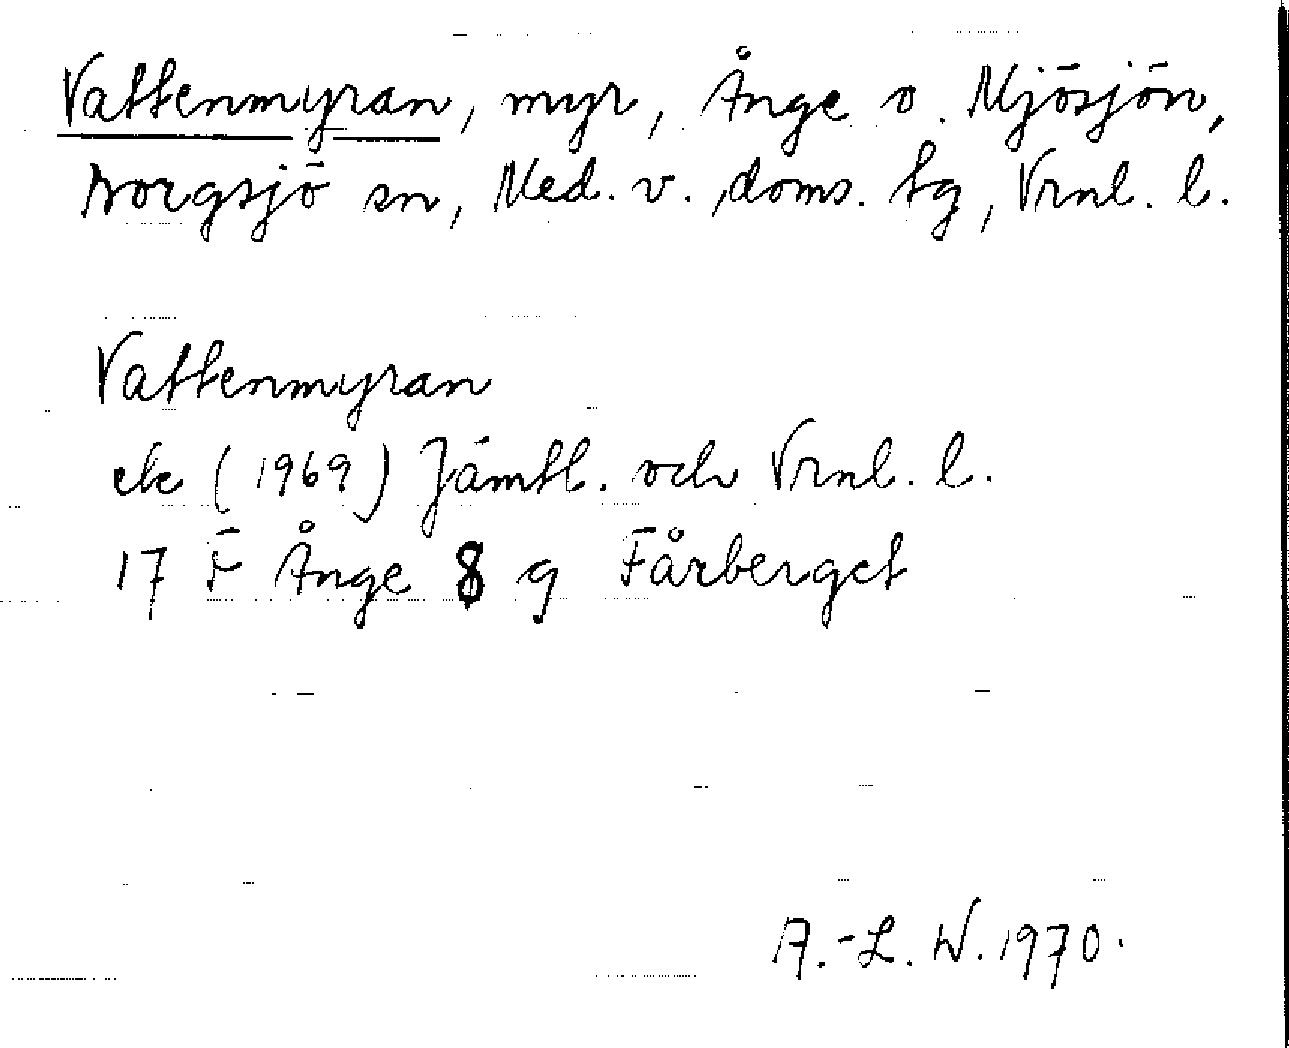 Vattenmyran, myr, Ånge o. Mjösjön,
Borgsjö sn, Med. v. doms. tg, Vrnl. l.
Vattenmyran
ek (1969) Jämtl. och Vrnl. l.
17 F Ånge 8 g Fårberget
A.-L. W. 1970.